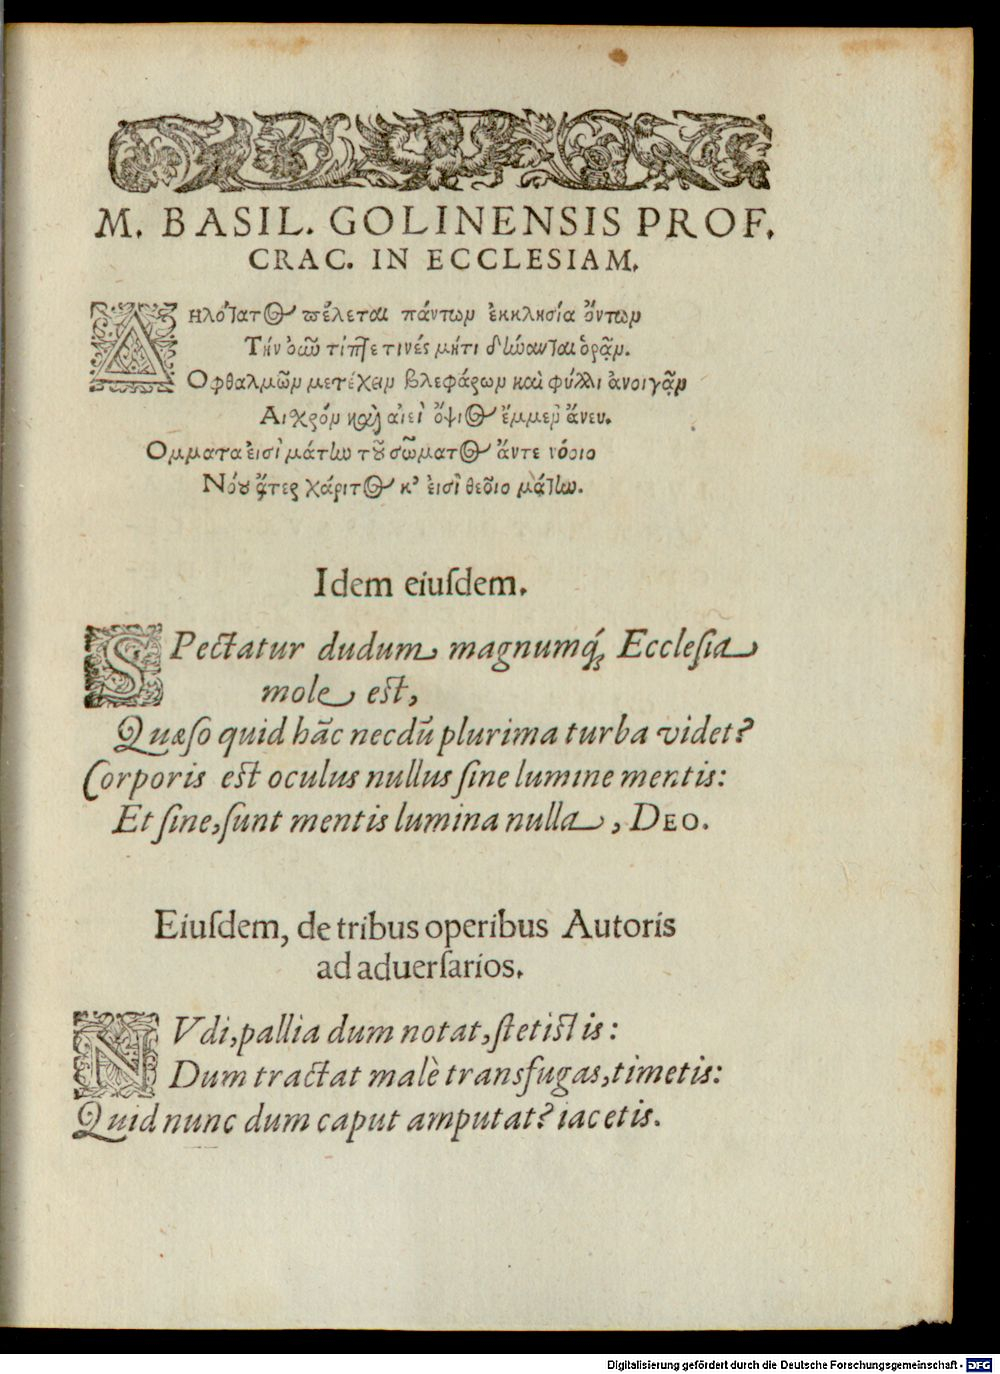 M. BASIL. GOLINENSIS PROF.
CRAC. IN ECCLESIAM.
Δηλότατος πέλεται πάντων ἐκκλησία ὄντων
Τὴν οὖν τίπτε τινές μήτι δύωανται ὁρᾶν.
Οφθαλμῶν μετέχειν βλεφάρων καὶ φύλλι ἀνοιγᾶν
Αι χρόν καὶ αἰεὶ ὄψιος ἔμμεν ἄνευ.
Ομματα εἰσὶ μάτlω τοῦ σώματος ἄντε νόοιο
Νόου ἄτερ χάριτος κ' εἰσὶ θεοῖο μάτlω.
Idem eiuſdem.
SPectatur dudum magnumq́; Eccleſia
mole est,
Quæſo quid hãc necdũ plurima turba videt?
Corporis est oculus nullus ſine lumine mentis:
Et ſine, ſunt mentis lumina nulla, DEO.
Eiuſdem, de tribus operibus Autoris
ad aduerſarios.
NVdi, pallia dum notat, ſtetiſtis:
Dum tractat malè transfugas, timetis:
Quid nunc dum caput amputat? iacetis.
Digitalisierung gefördert durch die Deutsche Forschungsgemeinschaft - DFG